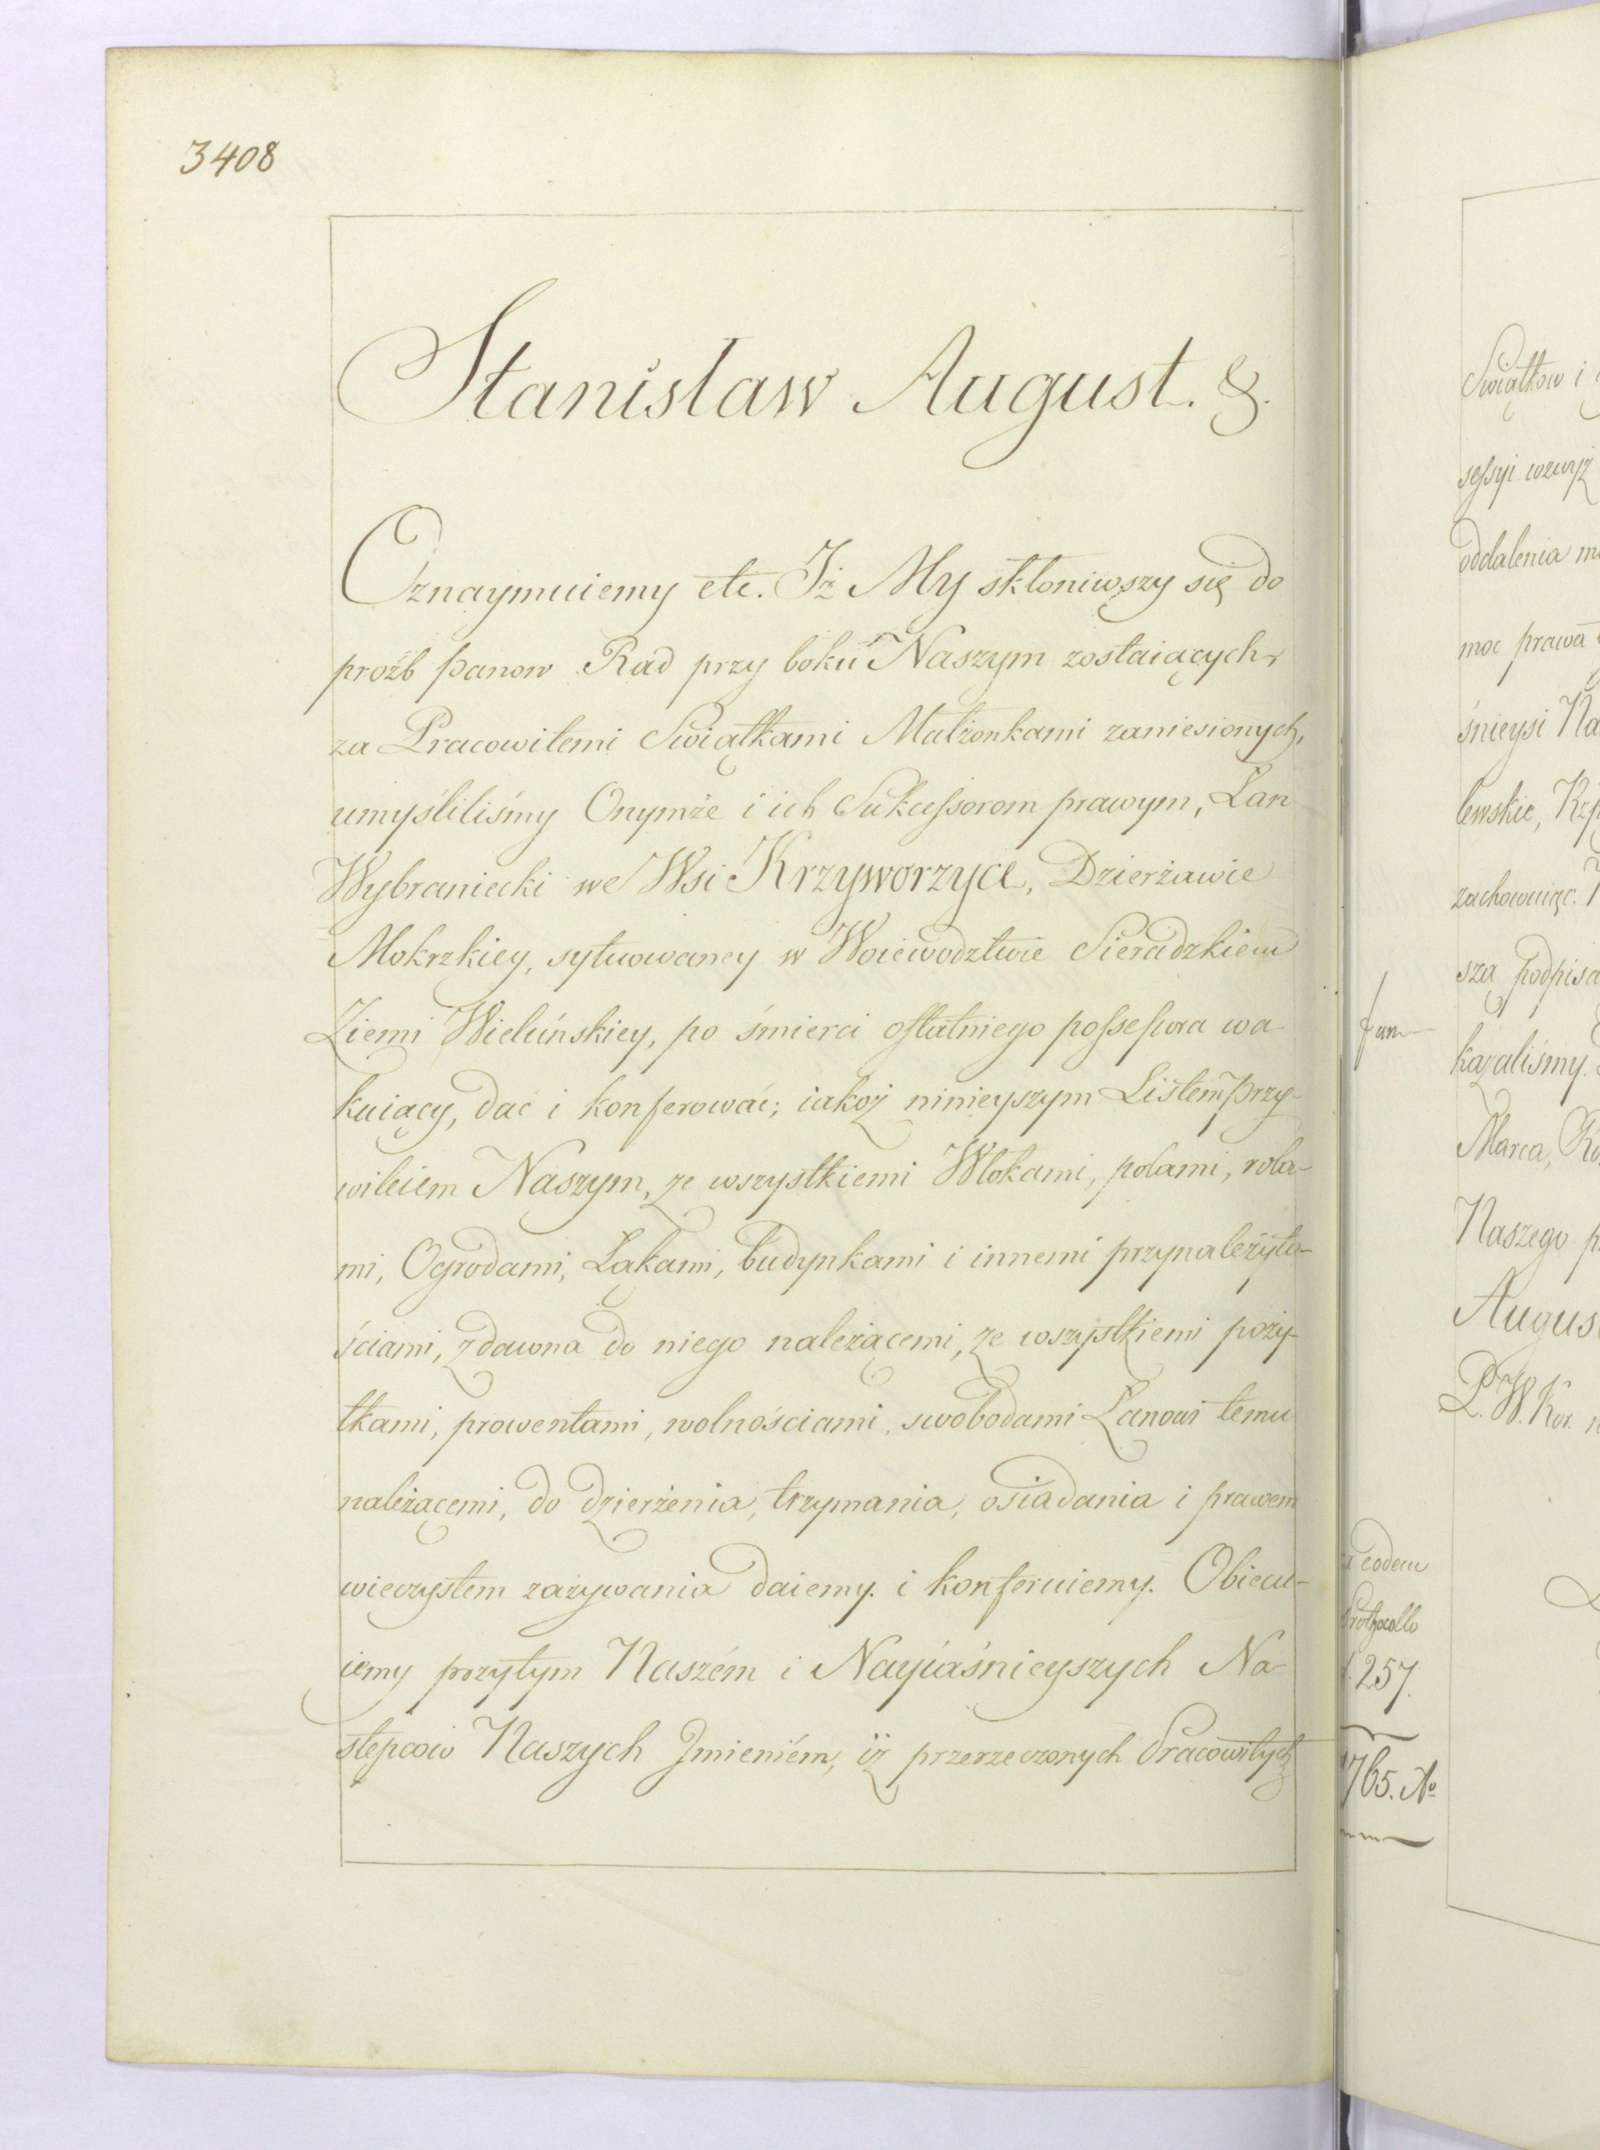 3408
Stanisław August. &.
Oznaymuiemy etc. Iż My skłoniwszy się do
proźb Panow Rad przy boku Naszym zostaiących
za Pracowitemi Swiątkami Małżonkami zaniesionych,
umyśliliśmy Onymże i ich Sukcessorom prawym, Łan
Wybraniecki we Wsi Krzyworzyce, Dzierżawie
Mokrzkiey, sytuowaney w Woiewodztwie Sieradzkiem
Ziemi Wieluńskiey, po śmierci ostatniego possessora wa-
kuiący, dać i konferować; iakoż ninieyszym Listem Przy-
wileiem Naszym, ze wszystkiemi Włokami, polami, rola-
mi, Ogrodami, Łąkami, budynkami i innemi przynależyto-
ściami, zdawna do niego należącemi, ze wszystkiemi poży-
tkami, prowentami, wolnościami, swobodami Łanowi temu
należącemi, do dzierżenia, trzymania, osiadania i prawem
wieczystem zażywania daiemy i konferuiemy. Obiecu-
iemy przytym Naszém i Nayiaśnieyszych Na-
stepcow Naszych Jmieniém, iż przerzeczonych Pracowitych
Swiątkow i
sessyi wzwyż
oddalenia
moc prawa
śnieysi
lewskie,
zachowuiąc.
szą podpisa
kazaliśmy.
Marca,
Naszego
August
P. W. Kor.
eodem
Prothocollo
f. 257.
1765. Ao